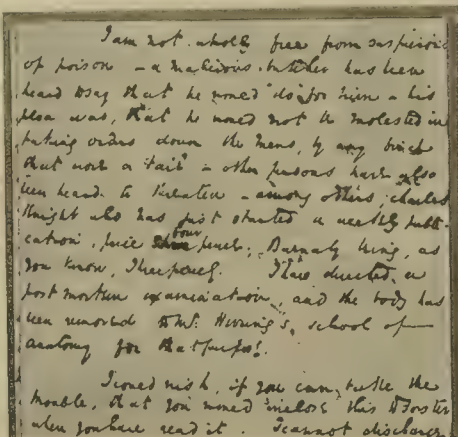 I am not wholly free from suspicions
of poison – a malicious butcher has been
heard to say that he would "do" for him – his
plea was, that he would not be molested in
taking orders down the Mews, by any bird
that wore a tail – other persons have also
been heard to threaten – among others, Charles
Knight who has just started a weekly publi-
cation, price four pence; Barnaby being, as
you know, Threepence. I have directed a
post mortem examination, and the body has
been removed to Mr. Herring's school of
anatomy for that purpose.
I could wish, if you can take the
trouble, that you would inclose this to Forster
when you have read it. I cannot discharge